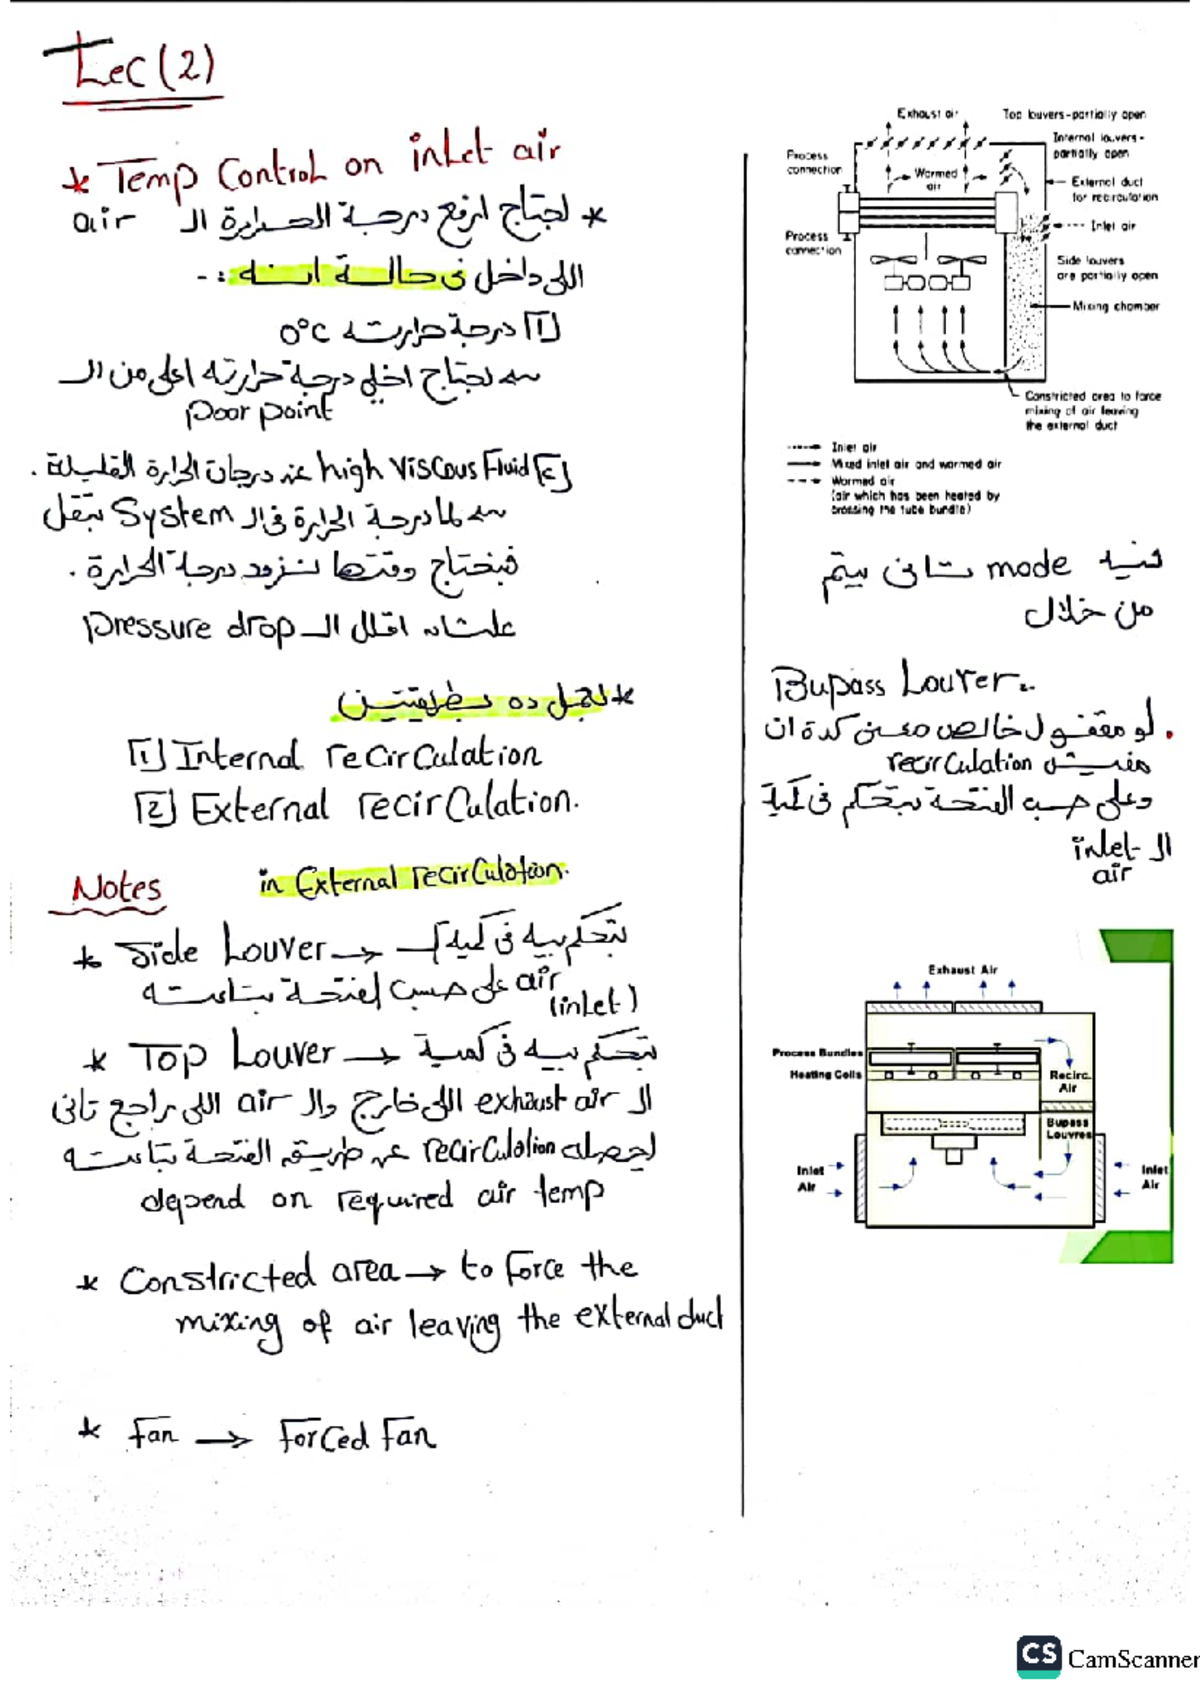 Lec (2)
* Temp Control on inlet air
* نحتاج نرفع درجة الحرارة الـ air
اللى داخل فى حالة انه :-
[1] درجة حرارته 0°C
نحتاج اخلي درجة حرارته اعلى من الـ
Poor point
[2] high Viscous Fluid عند درجات الحرارة القليلة .
لما درجة الحرارة فى الـ System بتقل
فبنحتاج وقتها نزود درجة الحرارة .
علشان اقلل الـ Pressure drop
* نعمل ده بطريقتين
[1] Internal recirculation
[2] External recirculation.
Notes in External recirculation.
* Side Louver → نتحكم بيه فى كمية الـ
air على حسب الفتحة بتاعته
(inlet)
* Top Louver → نتحكم بيه فى كمية
الـ exhaust air اللى خارج والـ air اللى راجع تانى
recirculation عن طريق الفتحة بتاعته
depend on required air temp
* Constricted area → to force the
mixing of air leaving the external duct
* Fan → Forced Fan
Exhaust air
Top louvers-partially open
Internal louvers-
partially open
Process
connection
Warmed
air
External duct
for recirculation
Inlet air
Process
connection
Side louvers
are partially open
Mixing chamber
Constricted area to force
mixing of air leaving
the external duct
Inlet air
Mixed inlet air and warmed air
Warmed air
(air which has been heated by
crossing the tube bundle)
فيه mode تانى بيتم
من خلال
Bupass Louver..
. لو مقفول خالص معنى كده ان
مفيش recirculation
وعلى حسب الفتحة بتتحكم فى كمية
الـ inlet
air
Exhaust Air
Process Bundles
Heating Coils
Recirc.
Air
Bupass
Louvres
Inlet
Air
Inlet
Air
CS CamScanner